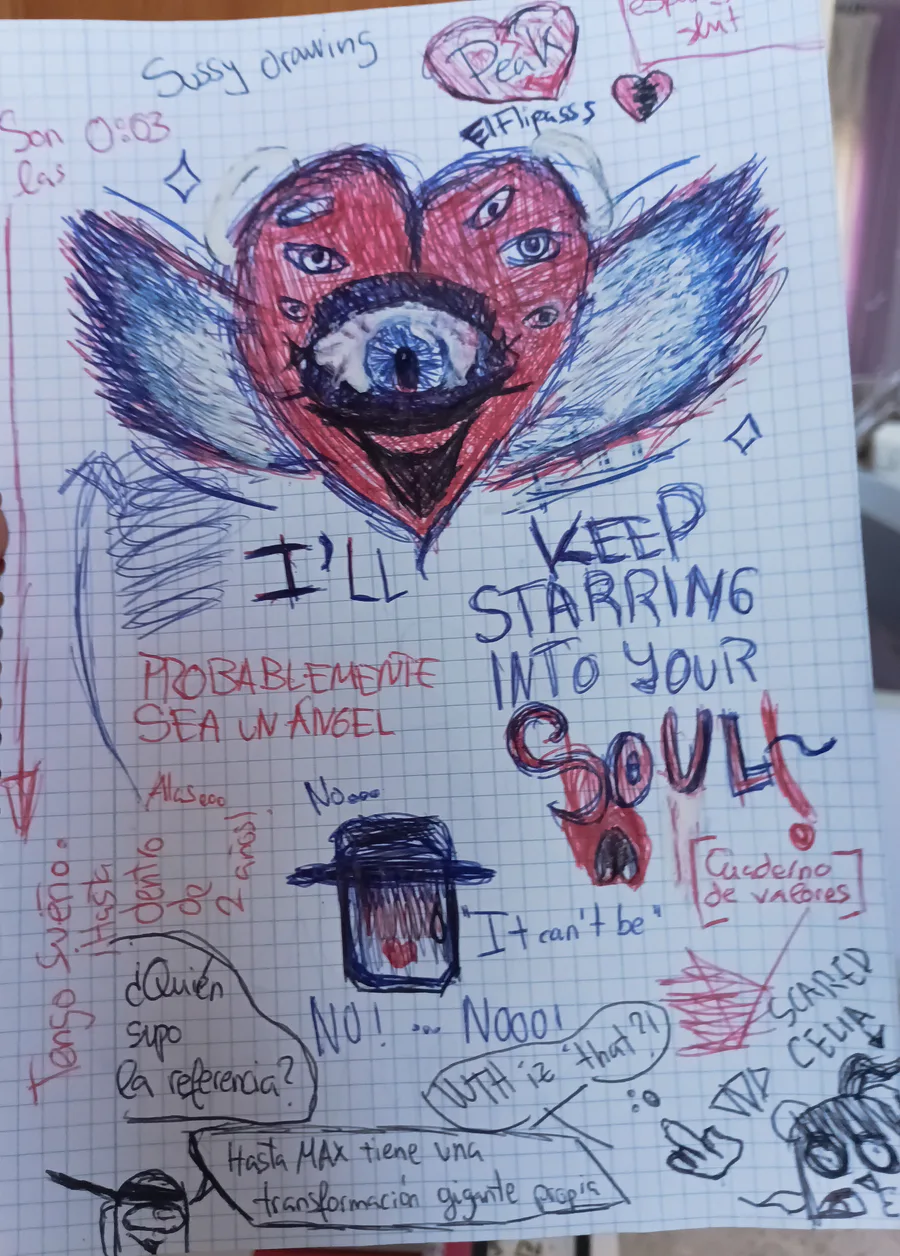 Sussy drawing
Peak
slut
Son 0:03
las
ElFlipasss
I'LL KEEP
STARRING
INTO YOUR
SOUL!
PROBABLEMENTE
SEA UN ÁNGEL
Alas...
No...
Tengo sueño.
¡Hasta
dentro
de
2 años!
Cuaderno
de valores
"It can't be"
NO! ... NOOO!
¿Quién
supo
la referencia?
WTH iz that?!
SCARED
CELIA
Hasta MAX tiene una
transformación gigante propia